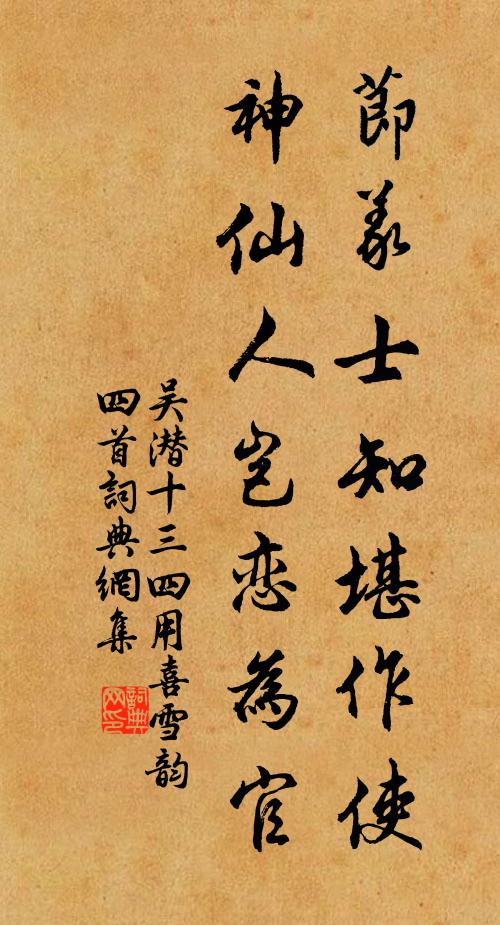 節義士知堪作使
神仙人豈恋為官
吴潜十三四用喜雪韵
四首詞典網集
詞典
网印